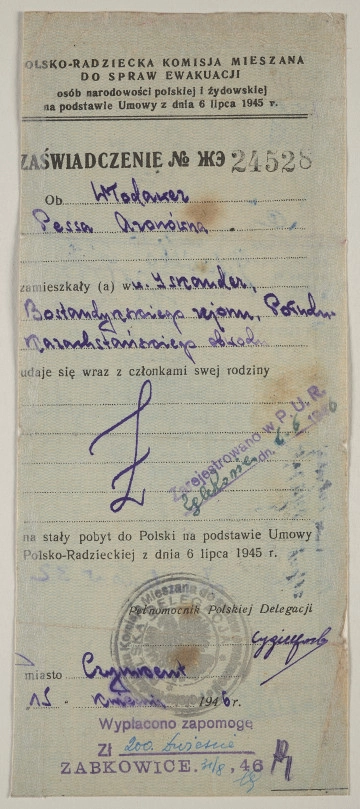 OLSKO-RADZIECKA KOMISJA MIESZANA
DO SPRAW EWAKUACJI
osób narodowości polskiej i żydowskiej
na podstawie Umowy z dnia 6 lipca 1945 r.
ZAŚWIADCZENIE № ЖЭ 24528
Ob. Włodawer
Pessa Aronówna
zamieszkały (a) w u. Iskander,
Bostandykskiego rejonu, Połudn.
Kazachstańskiego obwodu
udaje się wraz z członkami swej rodziny
Zarejestrowano w P. U. R.
dn. 6/6 1946
na stały pobyt do Polski na podstawie Umowy
Polsko-Radzieckiej z dnia 6 lipca 1945 r.
Pełnomocnik Polskiej Delegacji
miasto Czymkent
15. kwietnia 1946 r.
Wypłacono zapomogę
Zł 200. dwieście
ZABKOWICE. 31/8, 46